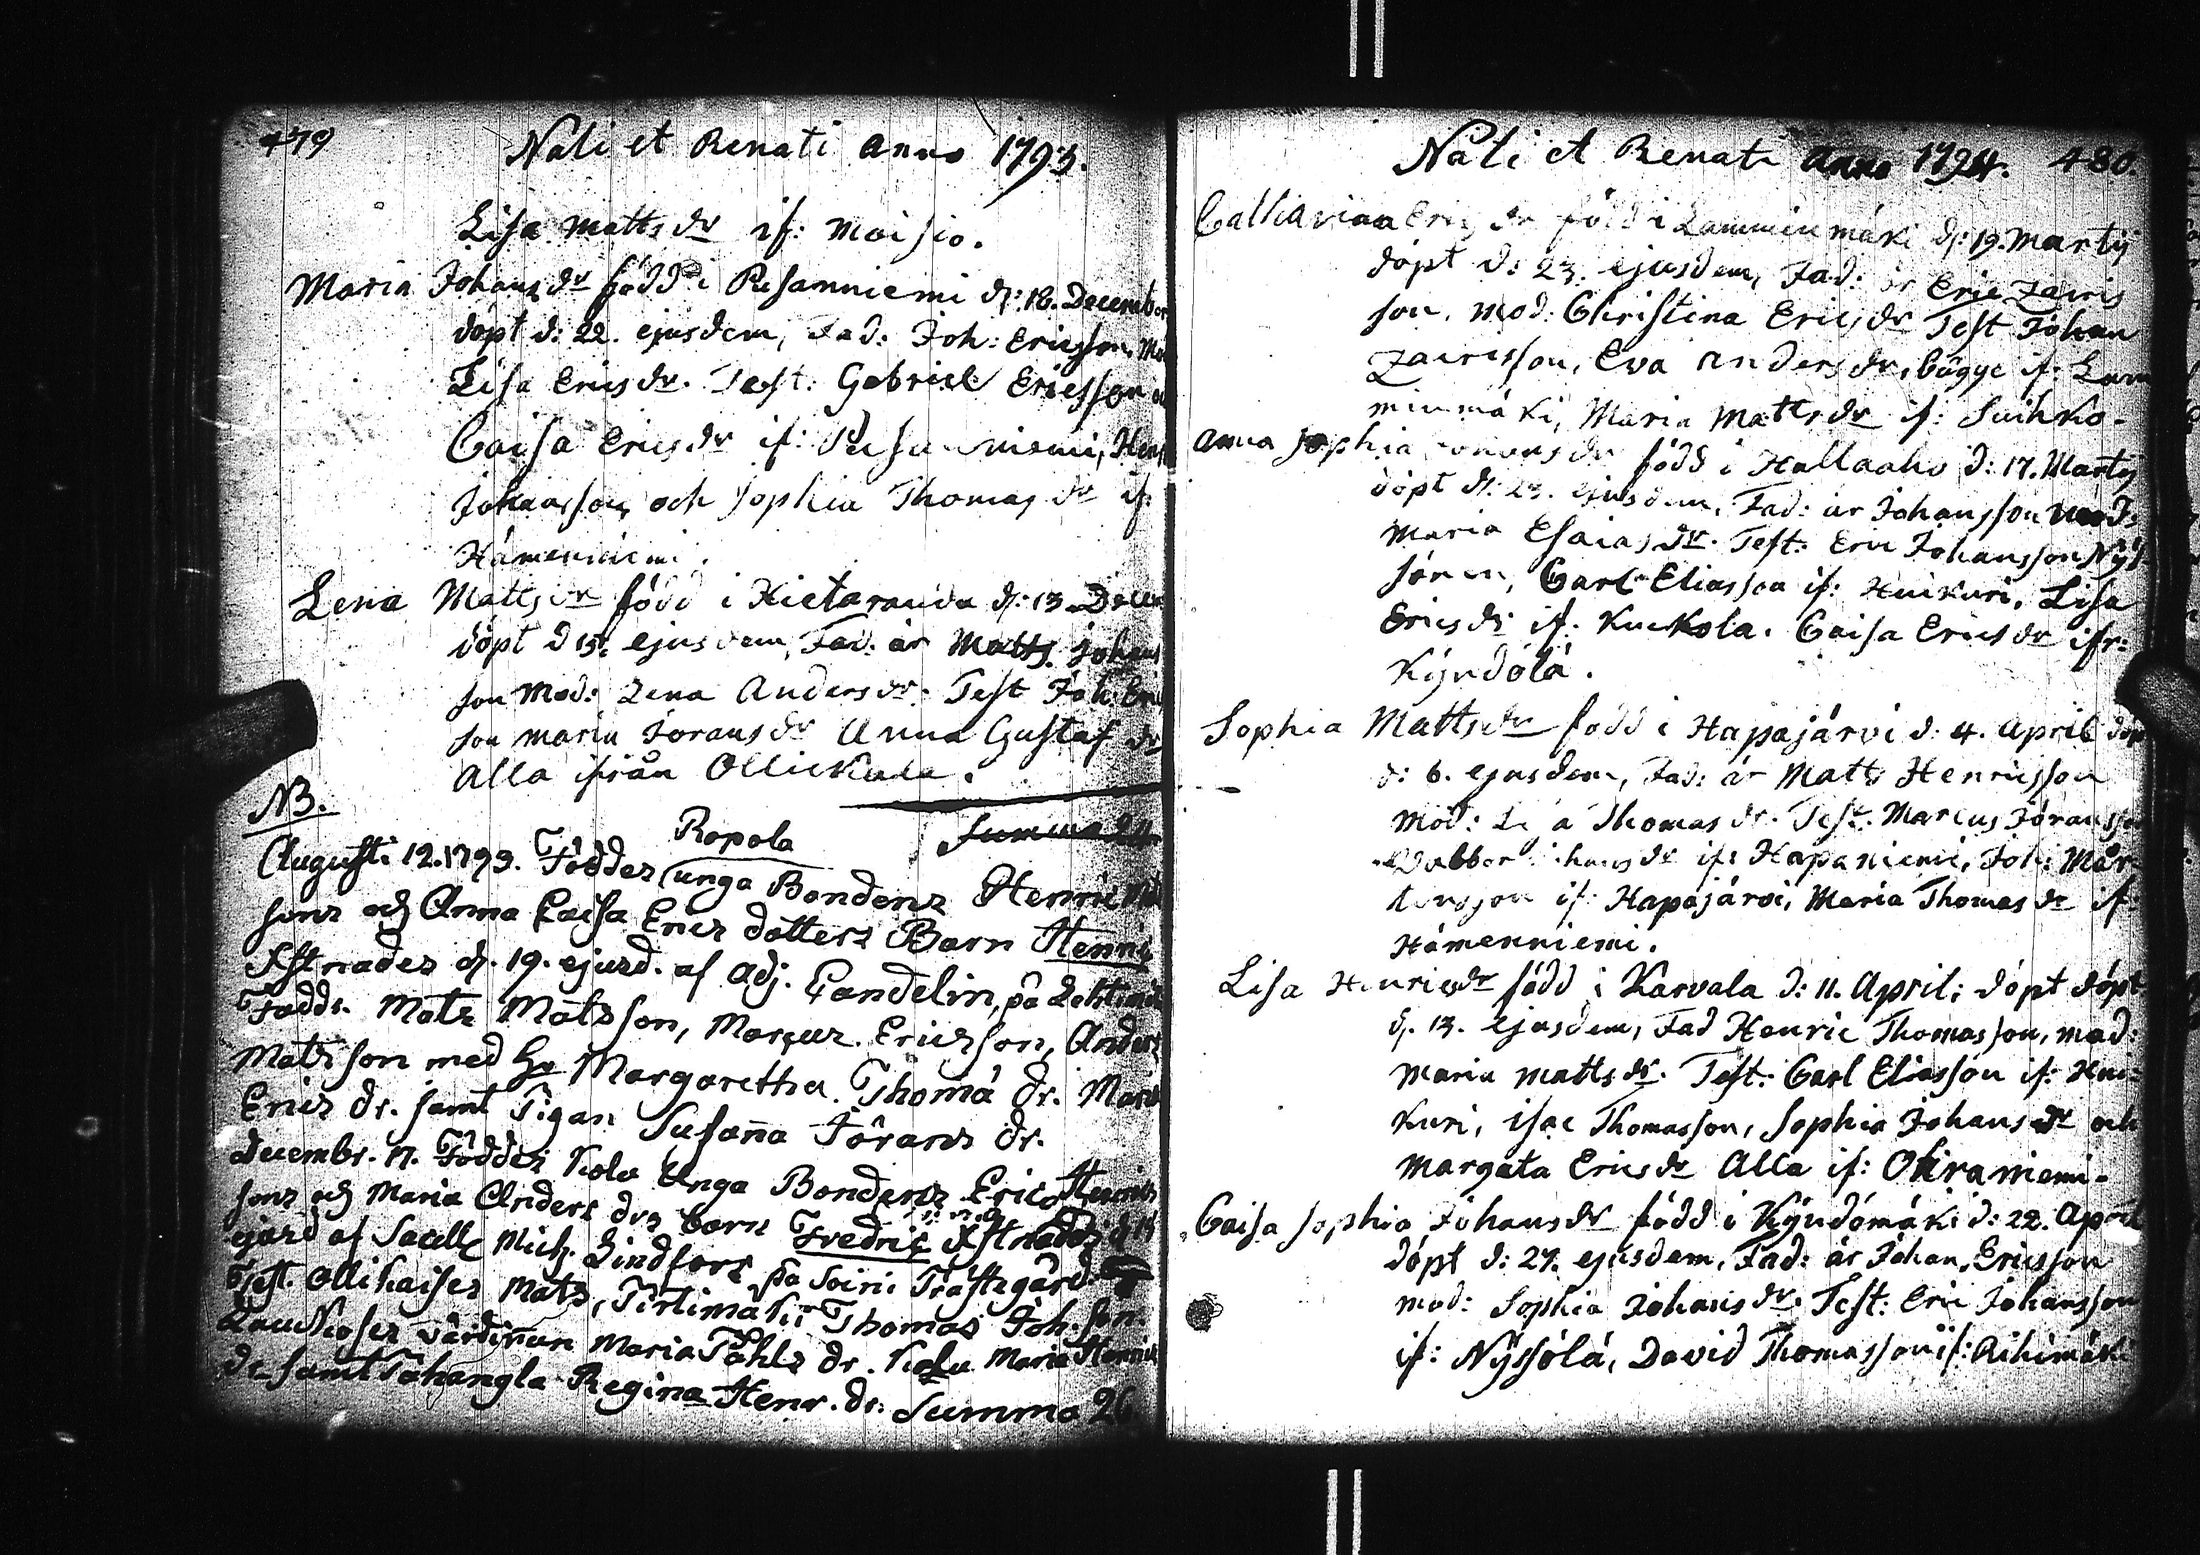 479 Nati et Renati anno 1793.
Lisa Mattsdr if: Moisio.
Maria Johansdr född i Pesamniemi d: 18. December
döpt d: 22. ejusdem, Fad: Joh: Ericsson, Mod
Lisa Ericsdr. Test: Gabriel Ericsson
Caisa Ericsdr if: niemi,
Johansson och Sophia Thomasdr if:
Hämenniemi.
Lena Mattsdr född i Hietaranda d: 13 Decem
döpt d 15. ejusdem, Fad: är Matts Johans
son Mod: Lena Andersdr. Test Joh: Eric
son Maria Joransdr Anna Gustafdr
Alla ifrån Ollickala.
Summa 24
NB. Ropola
Augusti 12. 1793. Föddes unga Bondens Henric
sons och Anna Caisa Erics dotters Barn Henric
Xstnades d. 19. ejusd. af Adj. Fandelin, på
Fadd. Mats Matsson, Marcus Ericsson, Anders
Matsson med Margaretha Thomä dr. Maria
Erics dr. samt Pigan Susaña Jörans dr.
Decembr. 17. Föddes Kolu Unga Bondens Eric Henrics
sons och Maria Anders drs barn Fredric Xstnades d
ejusd af Sacell. Mich. Lindfors på Soini Prästegård
Test. Ollikaises Mats, Pirtimäki Thomas Joh.son.
värdiñan Maria Påhls dr. Kolu Maria Henrics
dr samt Regina Henr. dr. Summa 26.
Nati et Renati Anno 1794. 480.
Catharina Ericsdr född i Lamminmäki d: 19. Martij
döpt d: 23. ejusdem, Fad: är Eric Zacris
son, mod: Christina Ericsdr Test Johan
Zacrisson, Eva Andersdr, bägge if: Lam
minmäki, Maria Mattsdr if: Suihko-
Anna Sophia född i Hallaaho d: 17. Martij
döpt d: 23. ejusdem, Fad: är Johansson mod:
Maria Esaiasdr. Test: Eric Johansson Nys
, Carl Eliasson if: Huikuri, Lisa
Ericsdr if. Kuckola. Caisa Ericsdr ifr:
Kyndölä.
Sophia Mattsdr född i Hapajärvi d: 4. April döpt
d: 6. ejusdem, Fad: är Matts Henricsson
Mod: Thomasdr. Test: Marcus Joransson
if: Hapaniemi, Joh: Mår
tensson if: Hapajärvi, Maria Thomasdr if:
Hämenniemi.
Lisa Henricsdr född i Karvala d: 11. April; döpt döpt
d. 13. ejusdem, Fad Henric Thomasson, mod:
Maria Mattsdr. Test: Carl Eliasson if: Hui-
kuri, Isac Thomasson, Sophia Johansdr och
Margata Ericsdr Alla if: Ohraniemi-
Caisa Sophia Johansdr född i Kyndömäki d: 22. April
döpt d: 27. ejusdem, Fad: är Johan Ericsson
mod: Sophia Johansdr. Test: Eric Johansson
if: Nyssölä, David Thomasson if: Rihimäki